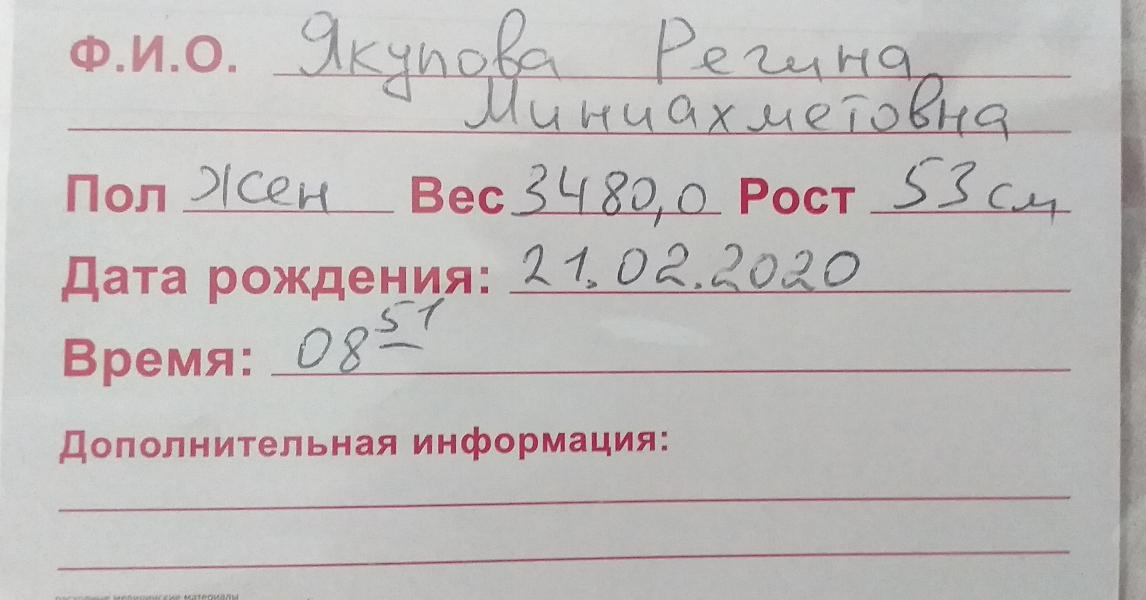 Ф.И.О. Якупова Регина
Миниахметовна
Пол Жен Вес 3480,0 Рост 53 см
Дата рождения: 21.02.2020
Время: 08 51
Дополнительная информация:
расходные медицинские материалы